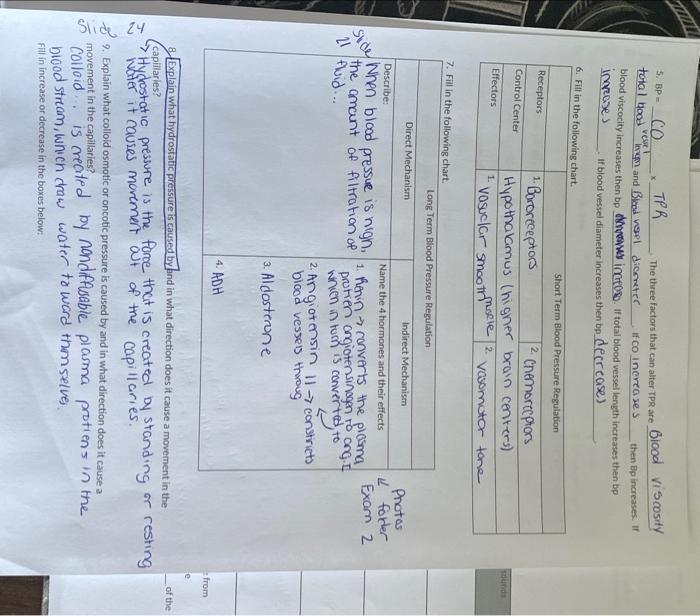 5. BP = CO x TPR. The three factors that can alter TPR are Blood viscosity
total blood vessel length and Blood vessel diameter. If CO increases then Bp increases. If
blood viscocity increases then bp increase. If total blood vessel length increases then bp
increases. If blood vessel diameter increases then bp decreases.
6. Fill in the following chart.
Short Term Blood Pressure Regulation
Receptors 1. Baroreceptors 2. Chemoreceptors
Control Center Hypothalamus (higher brain centers)
Effectors 1. Vasuclar smooth muscle 2. vasomotor tone
7. Fill in the following chart.
Long Term Blood Pressure Regulation
Direct Mechanism Indirect Mechanism
Describe: Name the 4 hormones and their effects
slide
21
When blood pressure is high,
the amount of filtration of
fluid...
1. Renin → converts the plasma
protien angiotensinogen to ang. I
which in turn is converted to
2. Angiotensin II → constricts
blood vessels throug
3. Aldosterone
4. ADH
Photos
folder
Exam 2
8. Explain what hydrostatic pressure is caused by and in what direction does it cause a movement in the
capillaries?
24
Hydrostatic pressure is the force that is created by standing or resting
water it causes movement out of the capillaries.
slide
9. Explain what colloid osmotic or oncotic pressure is caused by and in what direction does it cause a
movement in the capillaries?
Colloid... is created by nondiffusable plasma protiens in the
blood stream, which draw water toward themselves.
Fill in increase or decrease in the boxes below:
sounds
from
e
of the